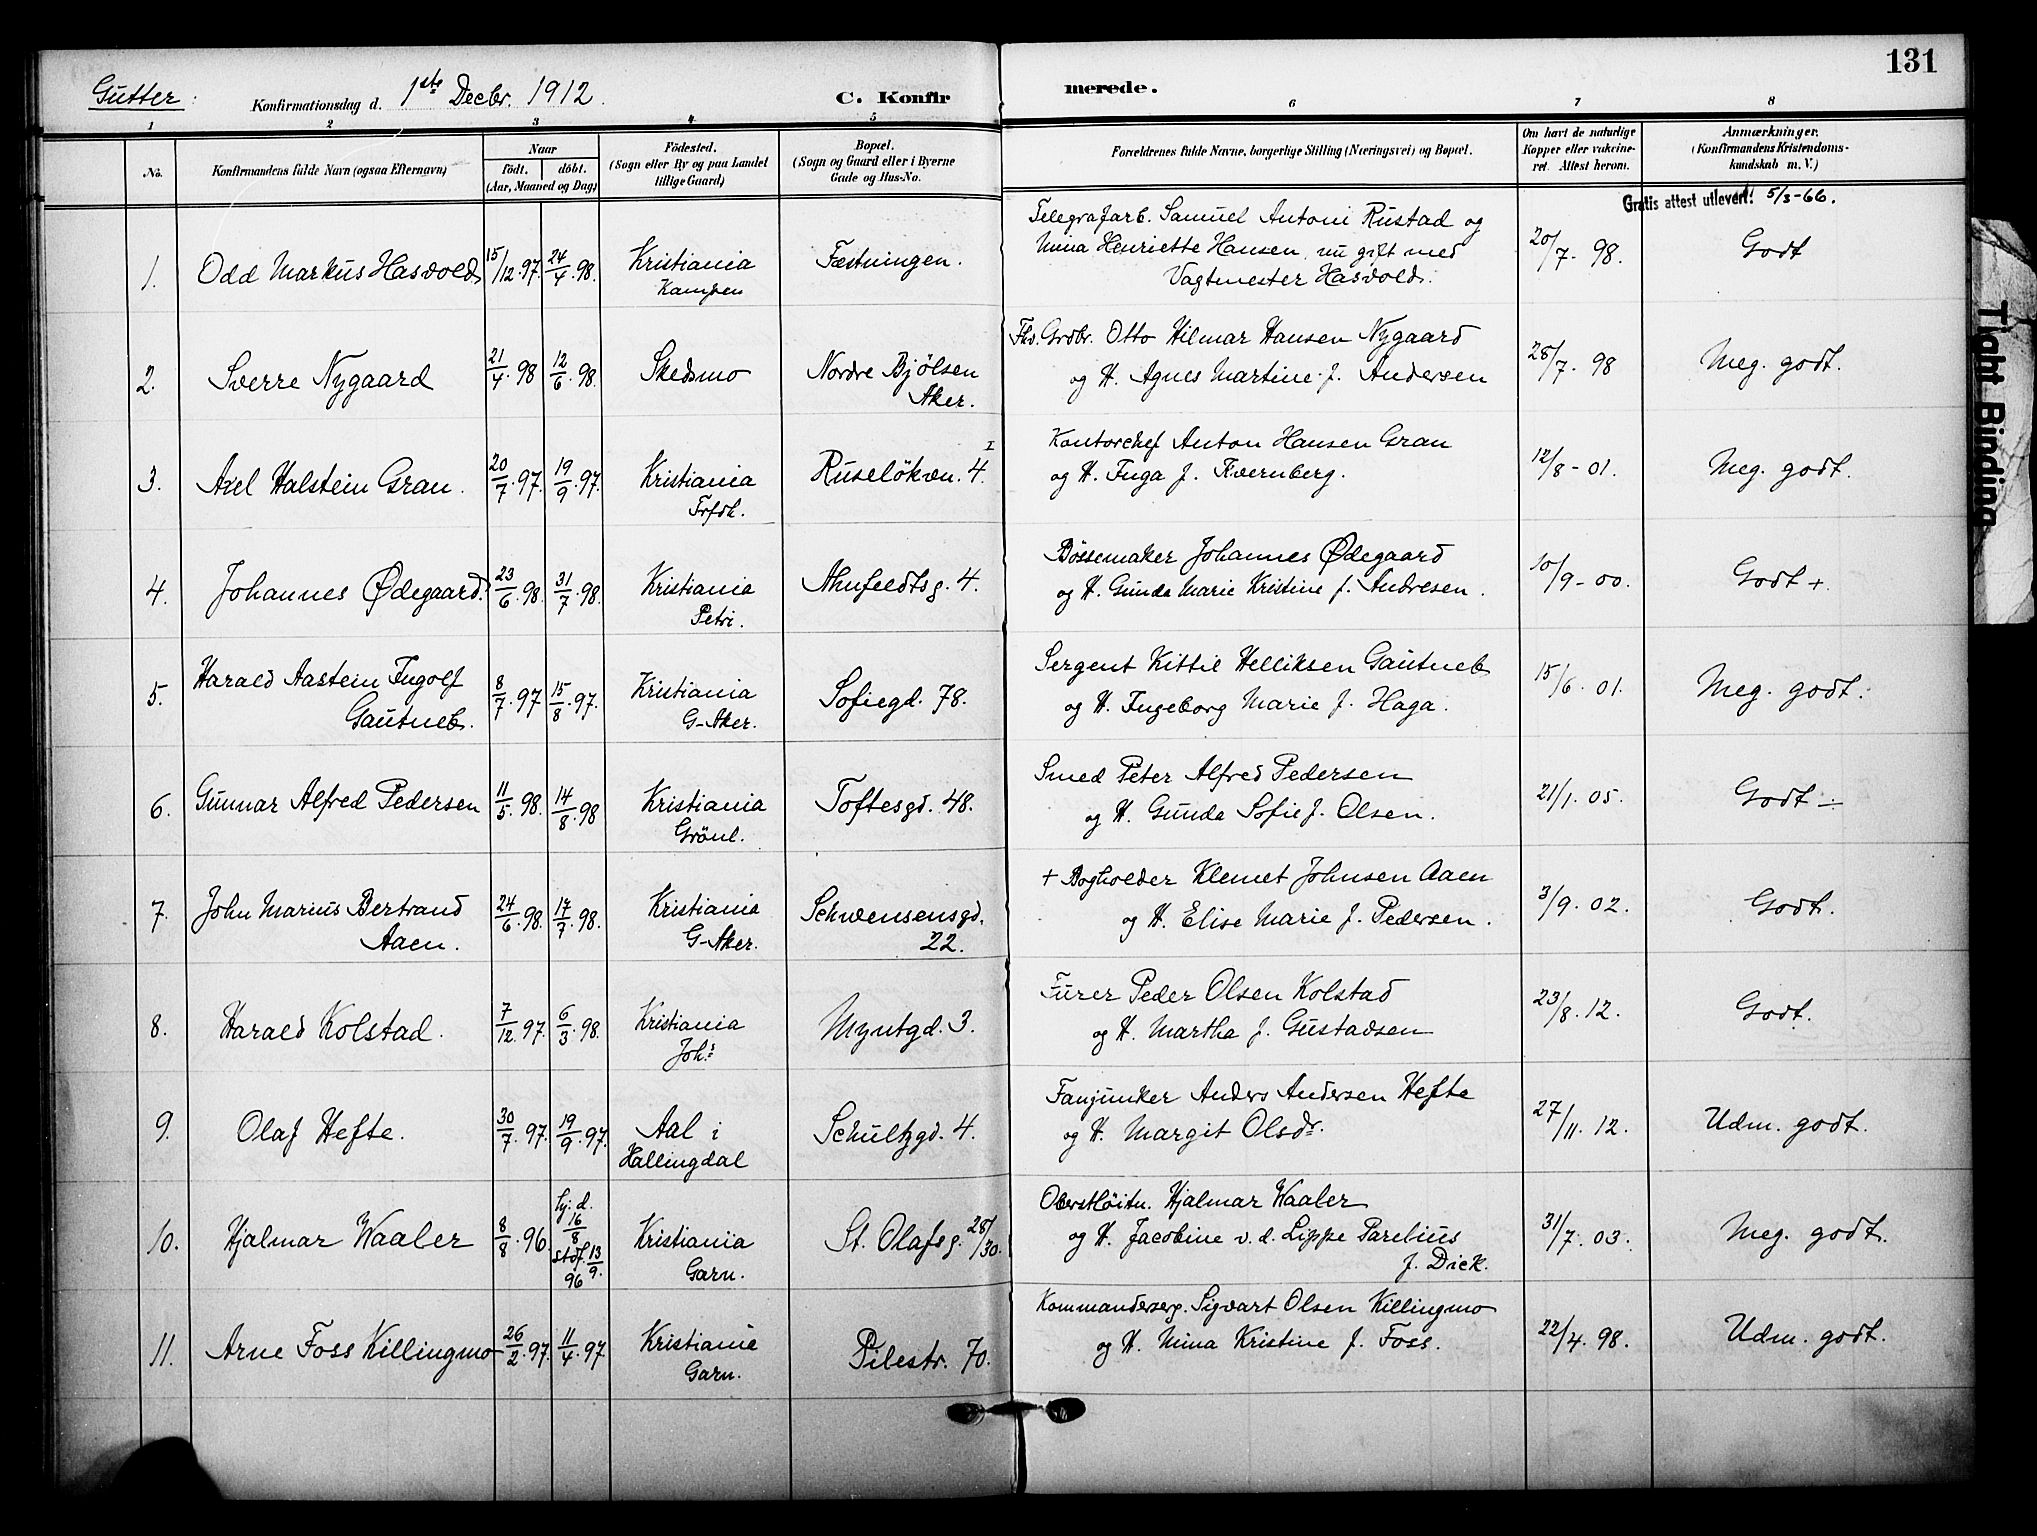 131
Gutter:
Konfirmationsdag d. 1ste Decbr. 1912.
C. Konfir
merede.
1 2 3 4 5 6 7 8
No.
Konfirmandens fulde Navn (ogsaa Efternavn)
Naar
födt. döbt.
(Aar, Maaned og Dag)
Födested.
(Sogn eller By og paa Landet
tillige Gaard)
Bopæl.
(Sogn og Gaard eller i Byerne
Gade og Hus-No.
Forældrenes fulde Navne, borgerlige Stilling (Næringsvei) og Bopæl.
Om havt de naturlige
Kopper eller vakcine-
ret. Attest herom.
Anmærkninger.
(Konfirmandens Kristendoms-
kundskab m. V.)
Gratis attest utlevert! 5/3-66.
1. Odd Markus Hasvold 15/12.97. 24/4.98. Kristiania Fæstningen.
Kampen
Telegrafarb. Samuel Antoni Rustad og
Mina Henriette Hansen, nu gift med
Vagtmester Hasvold.
20/7.98. Godt
2. Sverre Nygaard 21/4.98 12/6.98. Skedsmo Nordre Bjölsen
Aker.
Fhv. Grdbr. Otto Hilmar Hansen Nygaard
og H. Agnes Martine f. Andersen
28/7.98 Meg. godt.
3. Axel Halstein Gran. 20/7.97. 19/9.97. Kristiania Ruselökvn. 4. I
Trfdh.
Kontorchef Anton Hansen Gran
og H. Inga f. Kvernberg.
12/8-01. Meg. godt.
4. Johannes Ødegaard. 23/6.98. 31/7.98. Kristiania Ahnfeldtsg. 4.
Petri.
Bössemaker Johannes Ødegaard
og H. Gunda Marie Kristine f. Andresen.
10/9-00. Godt +.
5. Harald Aastein Ingolf
Gautneb. 8/7.97 15/8.97. Kristiania Sofiegd. 78.
G-Aker.
Sergent Kittil Helliksen Gautneb
og H. Ingeborg Marie f. Haga.
15/6.01. Meg. godt.
6. Gunnar Alfred Pedersen 11/5.98. 14/8.98 Kristiania Toftesgd. 48.
Grönl.
Smed Peter Alfred Pedersen
og H. Gunda Sofie f. Olsen.
21/1.05. Godt ÷
7. John Marius Bertrand
Aaen. 24/6.98. 17/7.98. Kristiania Schwensensgd.
G-Aker. 22.
+ Bogholder Klemet Johnsen Aaen
og H. Elise Marie f. Pedersen.
3/9.02. Godt.
8. Harald Kolstad. 7/12.97. 6/3.98. Kristiania Myntgd. 3.
Joh.s
Furer Peder Olsen Kolstad
og H. Martha f. Gustadsen
23/8.12. Godt.
9. Olaf Hefte. 30/7.97. 19/9.97. Aal i Schultzgd. 4.
Hallingdal
Fanjunker Anders Andersen Hefte
og H. Margit Olsdr.
27/11.12. Udm. godt.
10. Hjalmar Waaler 8/8.96. hj. d. 16/8 stdf. 13/9. 96 Kristiania St. Olafsg. 28/30.
Garn.
Oberstlöitn. Hjalmar Waaler
og H. Jacobine v. d. Lippe Parelius
f. Dick.
31/7.03. Meg. godt.
11. Arne Foss Killingmo 26/2.97. 11/4.97 Kristiania Pilestr. 70.
Garn.
Kommandersrg. Sigvart Olsen Killingmo
og H. Mina Kristine f. Foss.
22/4.98. Udm. godt.
Tight Binding